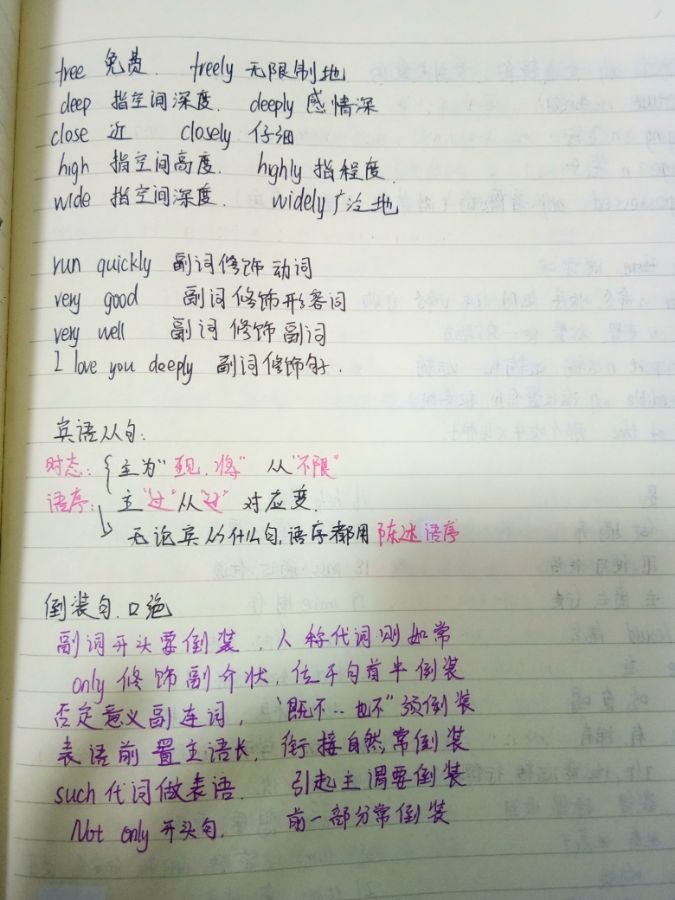 free 免费. freely 无限制地
deep 指空间深度. deeply 感情深
close 近 closely 仔细
high 指空间高度. highly 指程度
wide 指空间深度. widely 广泛地
run quickly 副词修饰动词
very good 副词修饰形容词
very well 副词修饰副词
I love you deeply 副词修饰句子.
宾语从句:
时态: 主为“现.将” 从“不限”
语序: 主“过”从“过” 对应变.
无论宾从什么句,语序都用陈述语序
倒装句.口诀
副词开头要倒装, 人称代词则如常
only修饰副介状, 位于句首半倒装
否定意义副连词, “既不..也不”须倒装
表语前置主语长, 衔接自然常倒装
such代词做表语. 引起主谓要倒装
Not only开头句. 前一部分常倒装